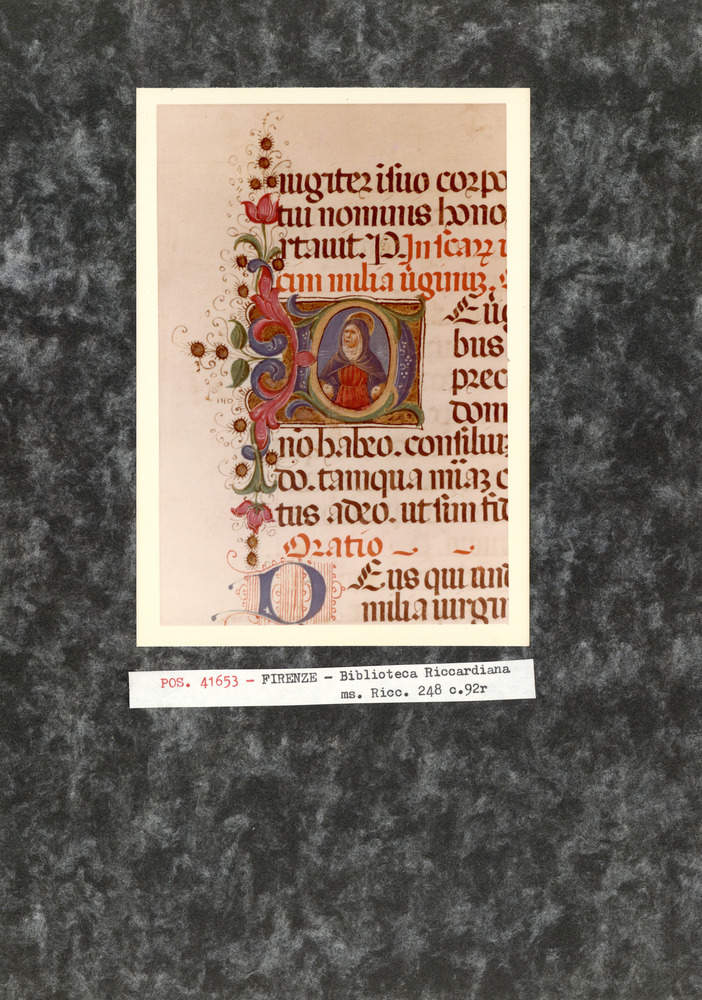 iugiter i suo corpo
tui nominis hono
rtauit. P. In scarz
cim milia uginuz.
Eug
bus
prec
dom
no habeo. consiliuz
do. tamqua miaz c
tus adeo. ut sim fid
Oratio
Deus qui und
milia uirgu
POS. 41653 - FIRENZE - Biblioteca Riccardiana
ms. Ricc. 248 c.92r